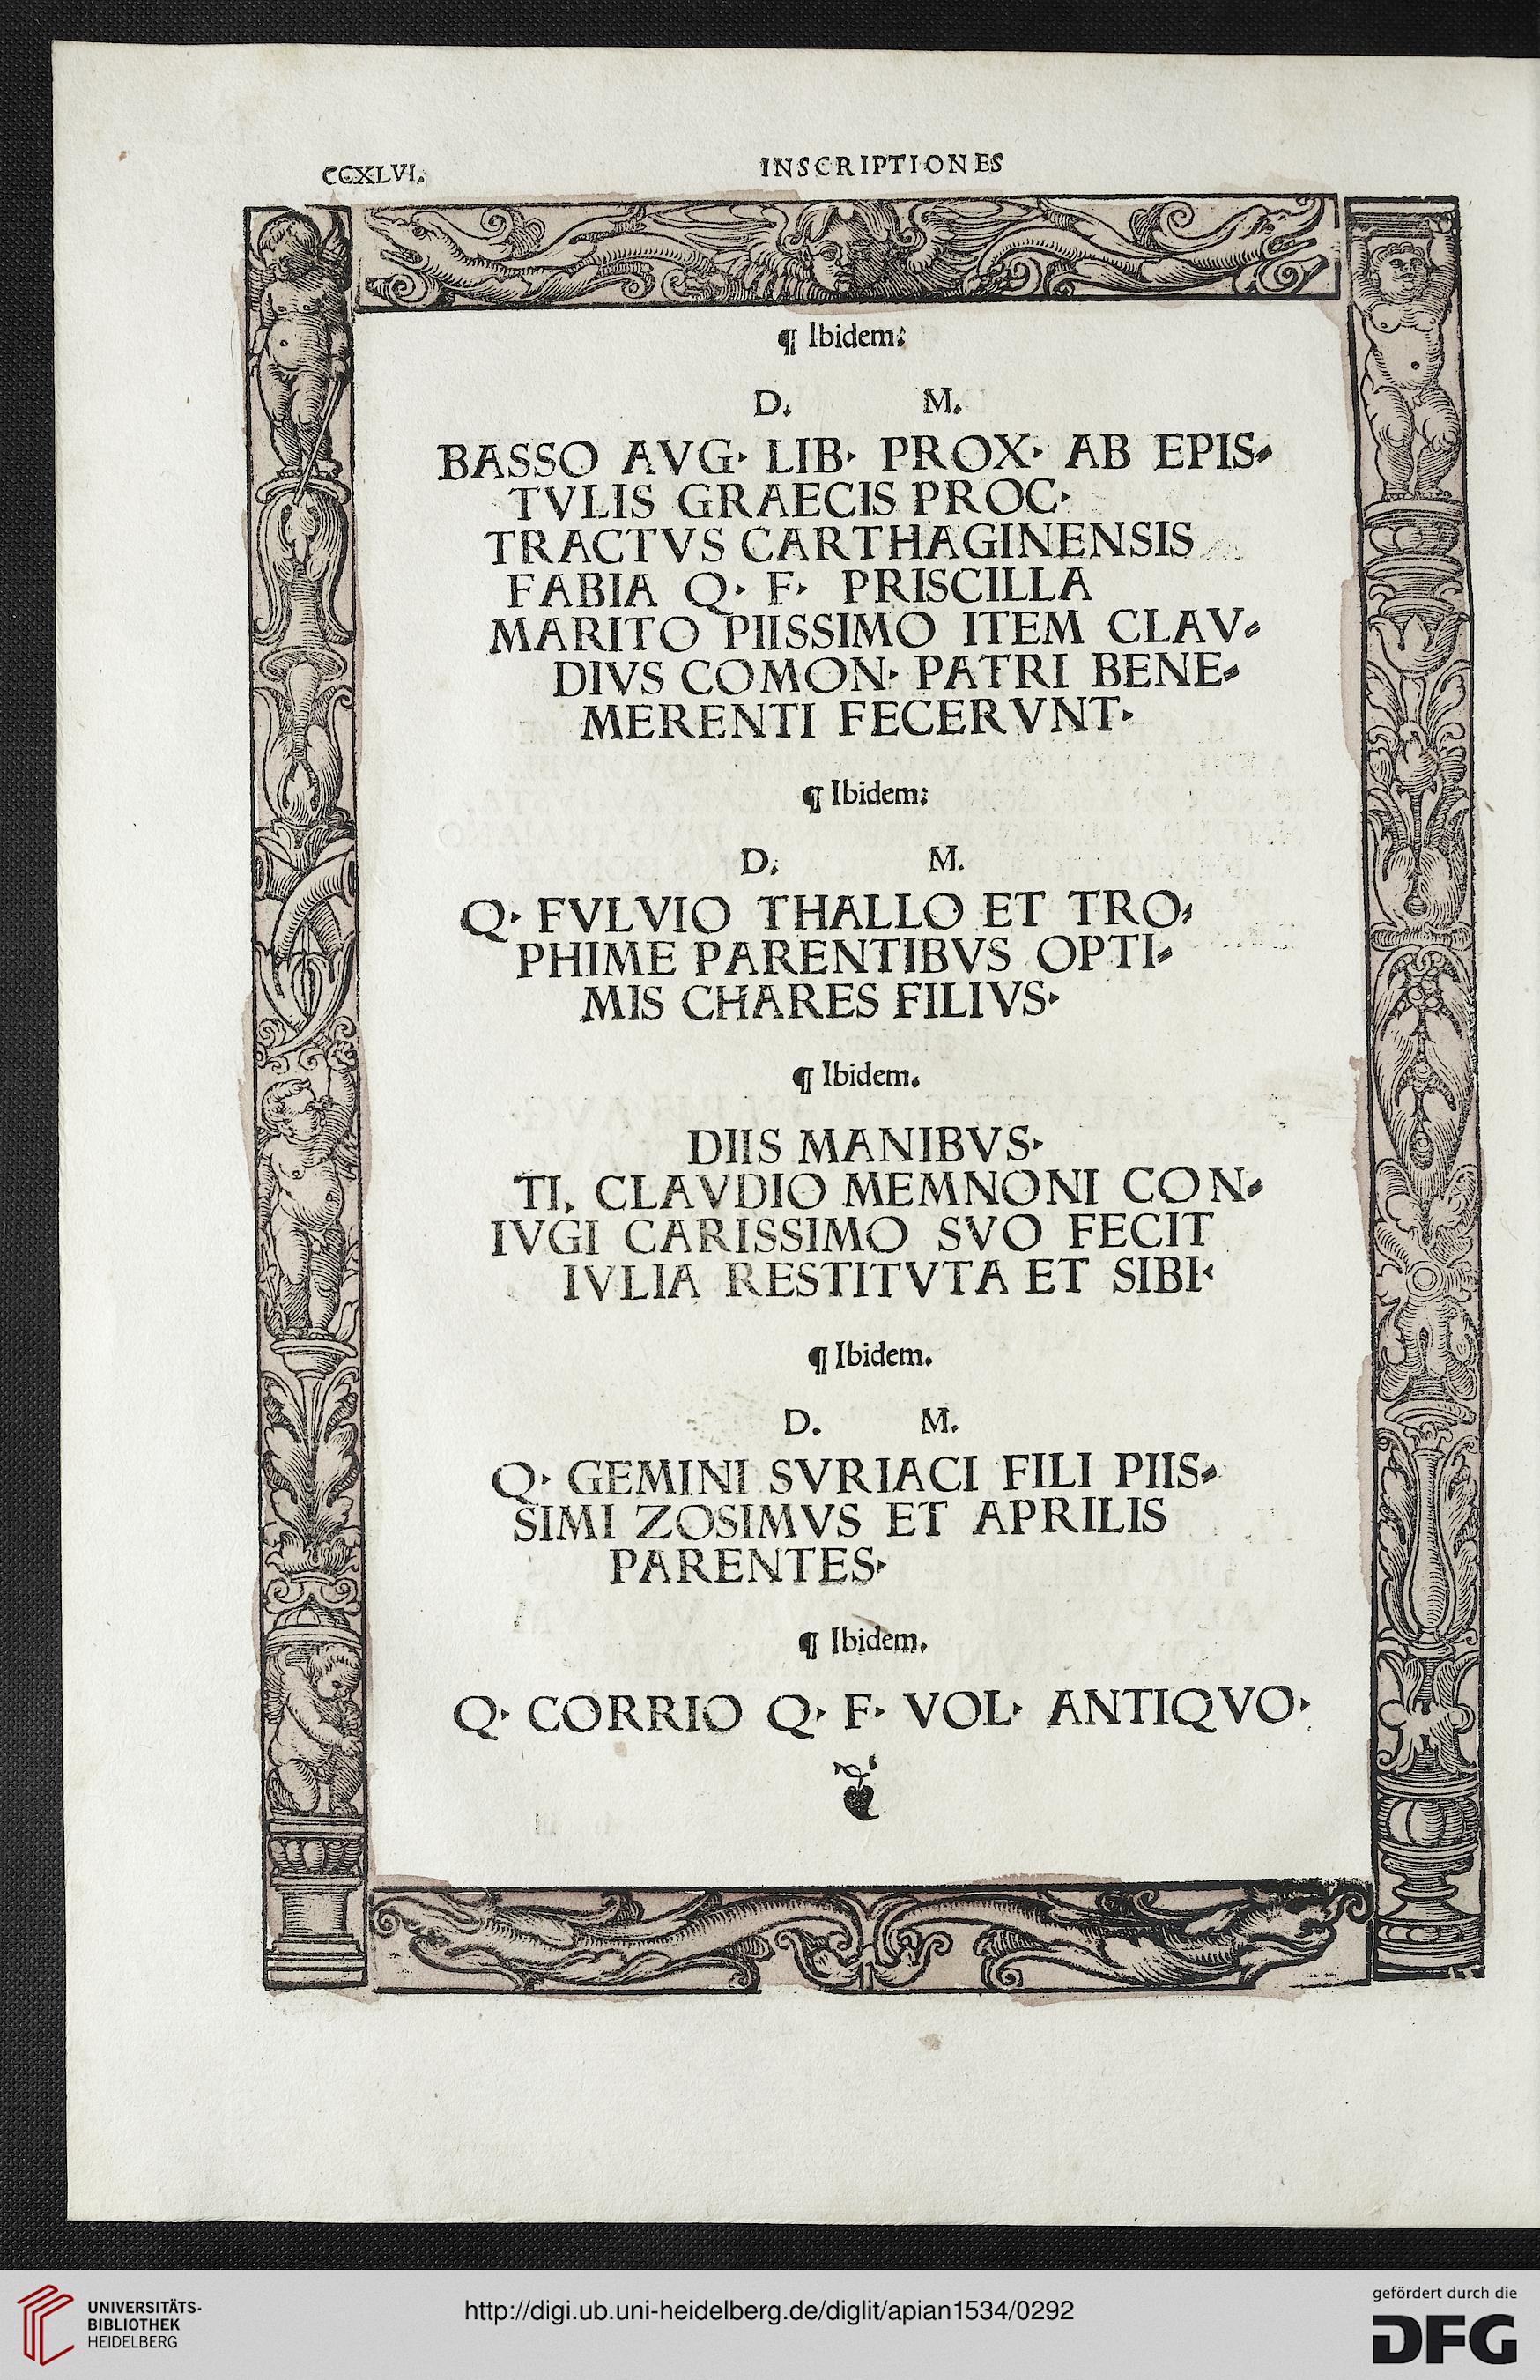 CCXLVI.
INSCRIPTIONES
¶ Ibidem:
D. M.
BASSO AVG· LIB· PROX· AB EPIS⸗
TVLIS GRAECIS PROC·
TRACTVS CARTHAGINENSIS
FABIA Q· F· PRISCILLA
MARITO PIISSIMO ITEM CLAV⸗
DIVS COMON· PATRI BENE⸗
MERENTI FECERVNT·
¶ Ibidem:
D. M.
Q· FVLVIO THALLO ET TRO⸗
PHIME PARENTIBVS OPTI⸗
MIS CHARES FILIVS·
¶ Ibidem.
DIIS MANIBVS·
TI. CLAVDIO MEMNONI CON⸗
IVGI CARISSIMO SVO FECIT
IVLIA RESTITVTA ET SIBI·
¶ Ibidem.
D. M.
Q· GEMINI SVRIACI FILI PIIS⸗
SIMI ZOSIMVS ET APRILIS
PARENTES·
¶ Ibidem.
Q· CORRIO Q· F· VOL· ANTIQVO·
UNIVERSITÄTS-
BIBLIOTHEK
HEIDELBERG
http://digi.ub.uni-heidelberg.de/diglit/apian1534/0292
gefördert durch die
DFG